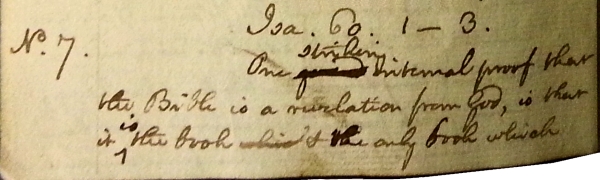 Isa. 60. 1 — 3.
No. 7.
One striking internal proof that
the Bible is a revelation from God, is that
it is the book & the only book which